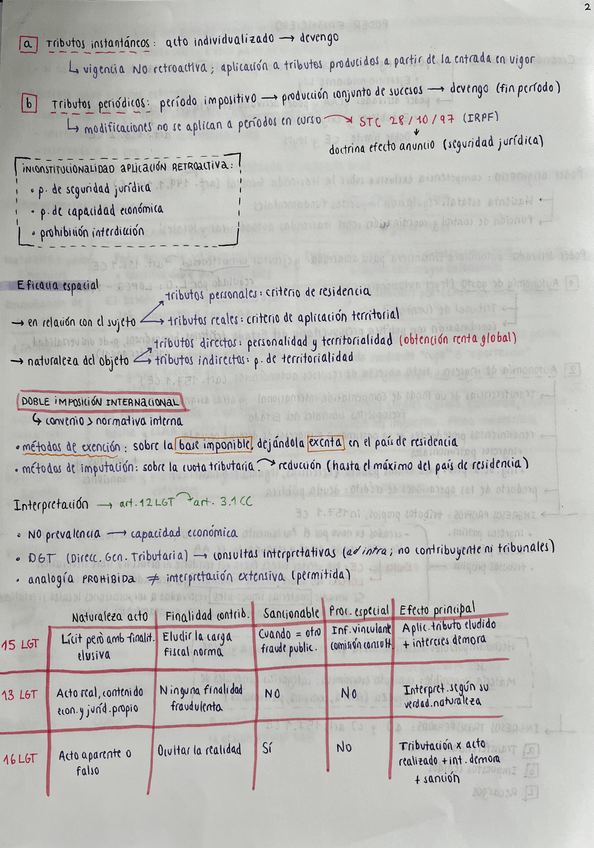 2
a Tributos instantáneos: acto individualizado → devengo
↳ vigencia NO retroactiva; aplicación a tributos producidos a partir de la entrada en vigor
b Tributos periódicos: período impositivo → producción conjunto de sucesos → devengo (fin período)
↳ modificaciones no se aplican a períodos en curso → STC 28/10/97 (IRPF)
↓
doctrina efecto anuncio (seguridad jurídica)
INCONSTITUCIONALIDAD APLICACIÓN RETROACTIVA:
• p. de seguridad jurídica
• p. de capacidad económica
• prohibición interdicción
Eficacia espacial
→ en relación con el sujeto
tributos personales: criterio de residencia
tributos reales: criterio de aplicación territorial
→ naturaleza del objeto
tributos directos: personalidad y territorialidad (obtención renta global)
tributos indirectos: p. de territorialidad
DOBLE IMPOSICIÓN INTERNACIONAL
↳ convenio > normativa interna
• métodos de exención: sobre la base imponible, dejándola exenta en el país de residencia
• métodos de imputación: sobre la cuota tributaria → reducción (hasta el máximo del país de residencia)
Interpretación → art. 12 LGT → art. 3.1 CC
• NO prevalencia → capacidad económica
• DGT (Direcc. Gen. Tributaria) → consultas interpretativas (ad intra; no contribuyente ni tribunales)
• analogía PROHIBIDA ≠ interpretación extensiva (permitida)
Naturaleza acto | Finalidad contrib. | Sancionable | Proc. especial | Efecto principal
15 LGT | Lícit però amb finalit. elusiva | Eludir la carga fiscal norma | Cuando = otro fraude public. | Inf. vinculante comisión consult. | Aplic. tributo eludido + intereses demora
13 LGT | Acto real, contenido econ. y juríd. propio | Ninguna finalidad fraudulenta | NO | No | Interpret. según su verdad. naturaleza
16 LGT | Acto aparente o falso | Ocultar la realidad | Sí | No | Tributación x acto realizado + int. demora + sanción